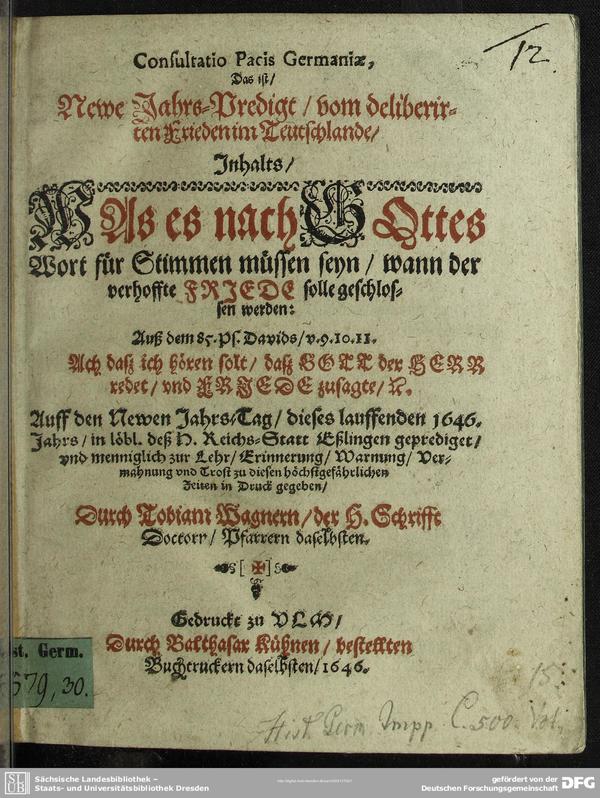 12.
Consultatio Pacis Germaniæ,
Das ist/
Newe Jahrs-Predigt / vom deliberir-
ten Frieden im Teutschlande/
Inhalts/
WAs es nach GOttes
Wort für Stimmen müssen seyn / wann der
verhoffte FRIEDE solle geschlos-
sen werden:
Auß dem 85. Ps. Davids / v. 9. 10. 11.
Ach daß ich hören solt / daß GOTT der HERR
redet / vnd FRIEDE zusagte / ⁊c.
Auff den Newen Jahrs-Tag / dieses lauffenden 1646.
Jahrs / in löbl. deß H. Reichs-Statt Eßlingen geprediget /
vnd menniglich zur Lehr / Erinnerung / Warnung / Ver-
mahnung vnd Trost zu diesen höchstgefährlichen
Zeiten in Druck gegeben /
Durch Tobiam Wagnern / der H. Schrifft
Doctorn / Pfarrern daselbsten.
Gedruckt zu VLM /
Durch Balthasar Kühnen / bestellten
Buchtruckern daselbsten / 1646.
st. Germ.
579, 30.
15.
Hist. Germ. Impp. C. 500. Vol.
SLUB
Sächsische Landesbibliothek –
Staats- und Universitätsbibliothek Dresden
gefördert von der
Deutschen Forschungsgemeinschaft
DFG